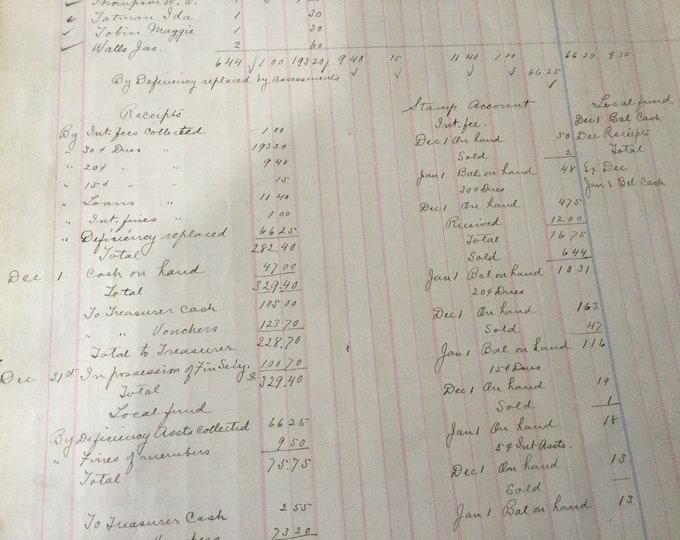 Thompson W. A. 1 30
Tatman Ida 1 30
Tobin Maggie 1 30
Walls Jas. 2 60
644 1 00 193 20 9 40 15 11 40 1 00 66 25 9 50
By Deficiency replaced by Assessments 66 25
Receipts
By Int. fees collected 1 00
" 30¢ Dues " 193 20
" 20¢ " " 9 40
" 15¢ " " 15
" Loans " 11 40
" Int. fines " 1 00
" Deficiency replaced 66 25
Total 282.40
Dec 1 Cash on hand 47 00
Total 329.40
To Treasurer Cash 105 00
" " Vouchers 123.70
Total to Treasurer 228.70
Dec 31st In possession of Fin Sec'y. 100 70
Total 329.40
Local fund
By Deficiency Assts collected 66 25
" Fines of members 9 50
Total 75.75
To Treasurer Cash 2 55
Vouchers 73 20
Stamp Account
Int. fee.
Dec 1 On hand 50
Sold 2
Jan 1 Bal on hand 48
30¢ Dues
Dec 1 On hand 475
Received 1200
Total 1675
Sold 644
Jan 1 Bal on hand 1031
20¢ Dues
Dec 1 On hand 163
Sold 47
Jan 1 Bal on hand 116
15¢ Dues
Dec 1 On hand 19
Sold 1
Jan 1 On hand 18
5¢ Int Assts.
Dec 1 On hand 13
Sold
Jan 1 Bal on hand 13
Local fund
Dec 1 Bal Cash
Dec Receipts
Total
Ex Dec
Jan 1 Bal Cash